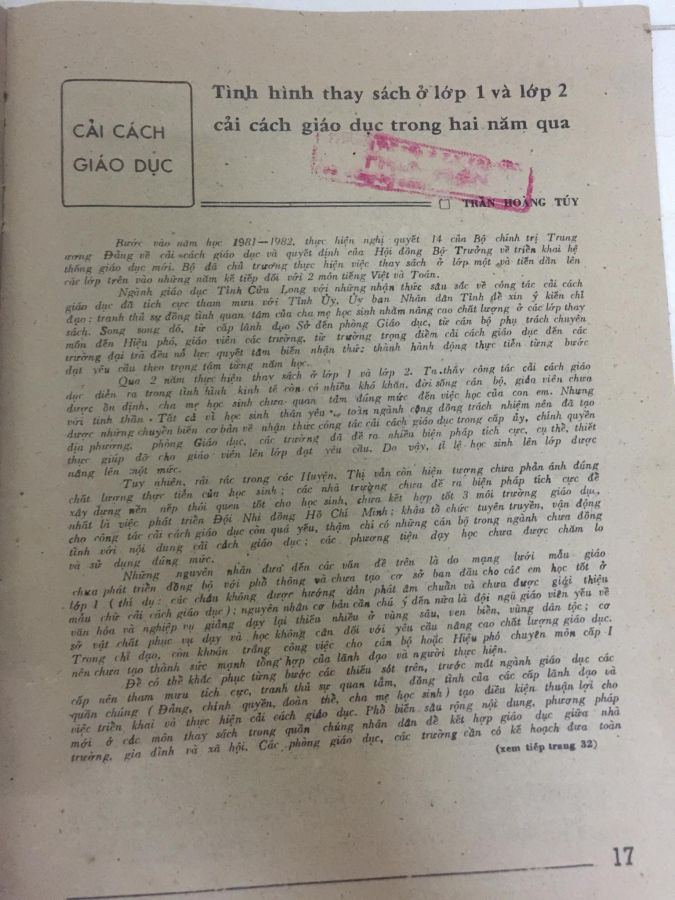 CẢI CÁCH
GIÁO DỤC
Tình hình thay sách ở lớp 1 và lớp 2
cải cách giáo dục trong hai năm qua
TRẦN HOÀNG TÚY
Bước vào năm học 1981—1982, thực hiện nghị quyết 14 của Bộ chính trị Trung
ương Đảng về cải cách giáo dục và quyết định của Hội đồng Bộ Trưởng về triển khai hệ
thống giáo dục mới. Bộ đã chủ trương thực hiện việc thay sách ở lớp một và tiến dần lên
các lớp trên vào những năm kế tiếp đối với 2 môn tiếng Việt và Toán.
Ngành giáo dục Tỉnh Cửu Long với những nhận thức sâu sắc về công tác cải cách
giáo dục đã tích cực tham mưu với Tỉnh Ủy, Ủy ban Nhân dân Tỉnh để xin ý kiến chỉ
đạo; tranh thủ sự đồng tình quan tâm của cha mẹ học sinh nhằm nâng cao chất lượng ở các lớp thay
sách. Song song đó, từ cấp lãnh đạo Sở đến phòng Giáo dục, từ cán bộ phụ trách chuyên
môn đến Hiệu phó, giáo viên các trường, từ trường trọng điểm cải cách giáo dục đến các
trường đại trà đều nỗ lực quyết tâm biến nhận thức thành hành động thực tiễn từng bước
đạt yêu cầu theo trọng tâm từng năm học.
Qua 2 năm thực hiện thay sách ở lớp 1 và lớp 2. Ta thấy công tác cải cách giáo
dục diễn ra trong tình hình kinh tế còn có nhiều khó khăn, đời sống cán bộ, giáo viên chưa
được ổn định, cha mẹ học sinh chưa quan tâm đúng mức đến việc học của con em. Nhưng
với tinh thần « Tất cả vì học sinh thân yêu » toàn ngành cộng đồng trách nhiệm nên đã tạo
được những chuyển biến cơ bản về nhận thức công tác cải cách giáo dục trong cấp ủy, chính quyền
địa phương, phòng Giáo dục, các trường đã đề ra nhiều biện pháp tích cực, cụ thể, thiết
thực giúp đỡ cho giáo viên lên lớp đạt yêu cầu. Do vậy, tỉ lệ học sinh lên lớp được
nâng lên một mức.
Tuy nhiên, rải rác trong các Huyện, Thị vẫn còn hiện tượng chưa phản ánh đúng
chất lượng thực tiễn của học sinh; các nhà trường chưa đề ra biện pháp tích cực để
xây dựng nền nếp thói quen tốt cho học sinh, chưa kết hợp tốt 3 môi trường giáo dục,
nhất là việc phát triển Đội Nhi đồng Hồ Chí Minh; khâu tổ chức tuyên truyền, vận động
cho công tác cải cách giáo dục còn quá yếu, thậm chí có những cán bộ trong ngành chưa đồng
tình với nội dung cải cách giáo dục; các phương tiện dạy học chưa được chăm lo
và sử dụng đúng mức.
Những nguyên nhân đưa đến các vấn đề trên là do mạng lưới mẫu giáo
chưa phát triển đồng bộ với phổ thông và chưa tạo cơ sở ban đầu cho các em học tốt ở
lớp 1 (thí dụ: các cháu không được hướng dẫn phát âm chuẩn và chưa được giới thiệu
mẫu chữ cải cách giáo dục); nguyên nhân cơ bản cần chú ý đến nữa là đội ngũ giáo viên yếu về
văn hóa và nghiệp vụ giảng dạy lại thiếu nhiều ở vùng sâu, ven biển, vùng dân tộc; cơ
sở vật chất phục vụ dạy và học không cân đối với yêu cầu nâng cao chất lượng giáo dục.
Trong chỉ đạo, còn khoán trắng công việc cho cán bộ hoặc Hiệu phó chuyên môn cấp I
nên chưa tạo thành sức mạnh tổng hợp của lãnh đạo và người thực hiện.
Để có thể khắc phục từng bước các thiếu sót trên, trước mắt ngành giáo dục các
cấp nên tham mưu tích cực, tranh thủ sự quan tâm, đồng tình của các cấp lãnh đạo và
quần chúng (Đảng, chính quyền, đoàn thể, cha mẹ học sinh) tạo điều kiện thuận lợi cho
việc triển khai và thực hiện cải cách giáo dục. Phổ biến sâu rộng nội dung, phương pháp
mới ở các môn thay sách trong quần chúng nhân dân để kết hợp giáo dục giữa nhà
trường, gia đình và xã hội. Các phòng giáo dục, các trường cần có kế hoạch đưa toàn
(xem tiếp trang 32)
17